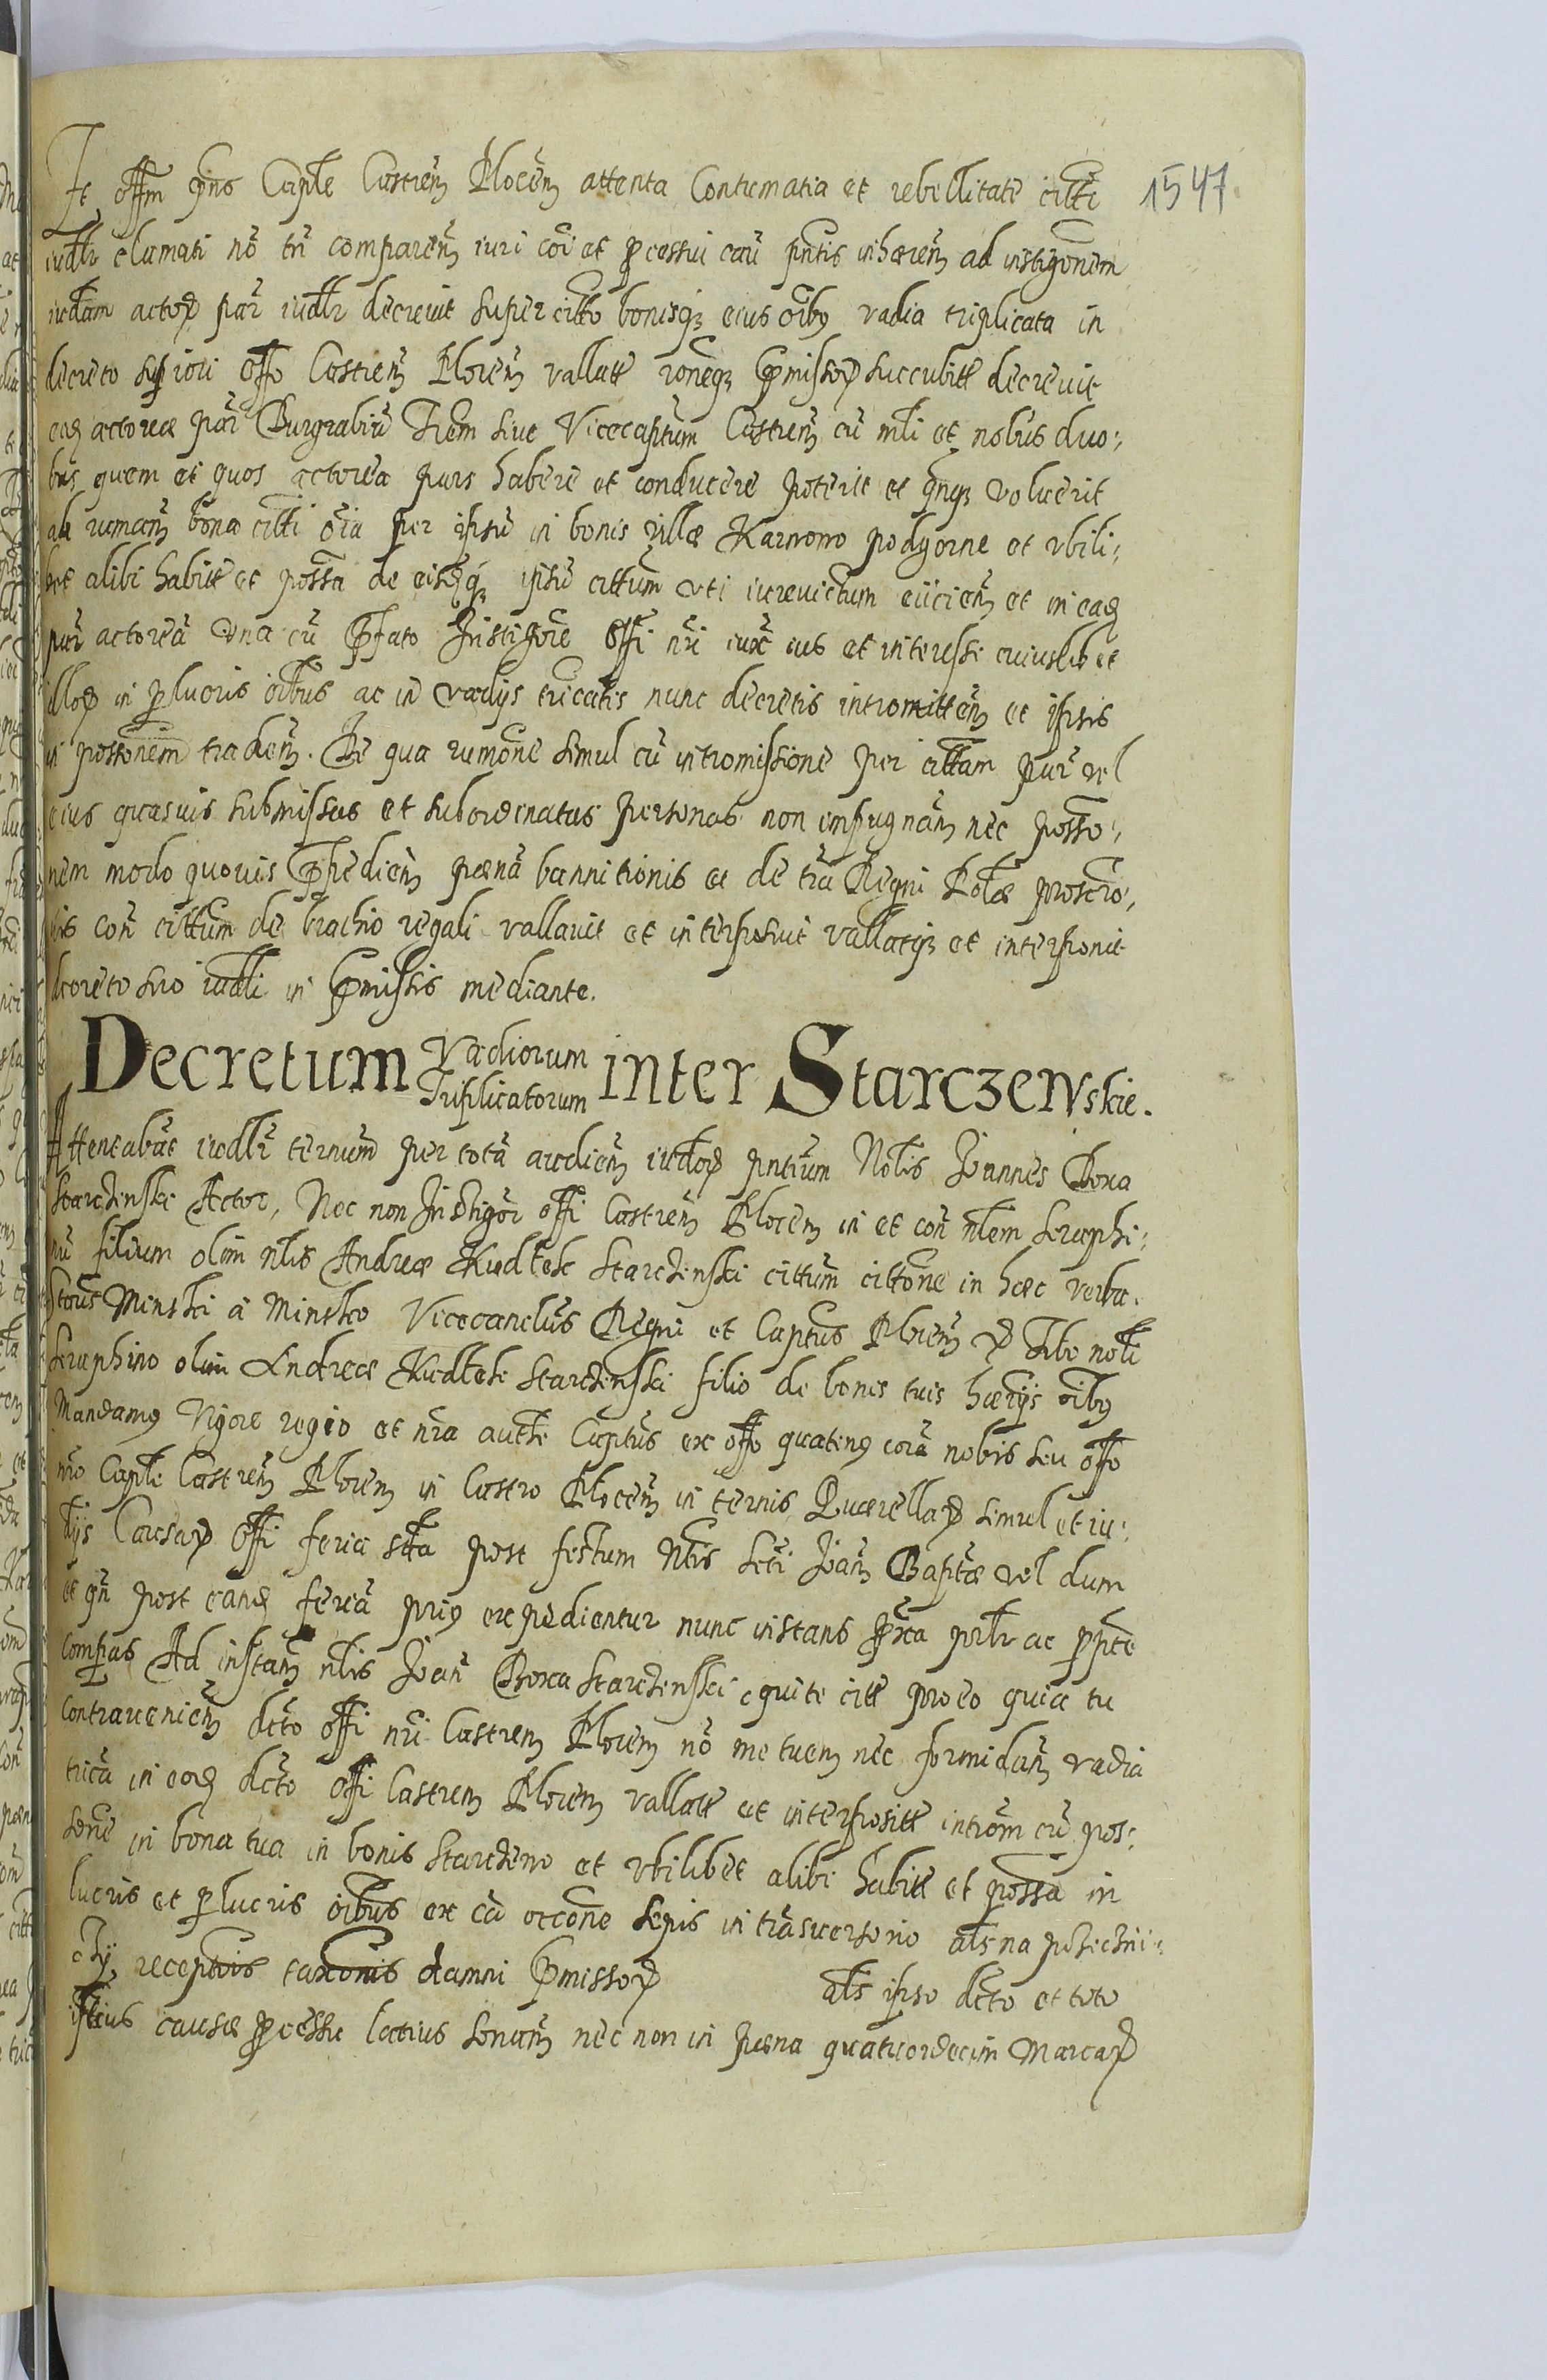 1547
Et offm pns Caple Castren Plocen attenta Contumatia et rebellitate citti
iudlr clamati no tn comparen iuri coi et pcessui cau pntis inhæren ad instigonem
iudlam actor par iudlr decrevit super citto bonisq eius oibus vadia triplicata in
decreto supriori Offo Castren Plocen vallatt roneq Pmissor succubitt decrevit
eaq actoreæ par Burgrabiu Trem sive Vicecaptum Castren cu mli et nobus duo:
bus quem et quos actorea pars habere et conducere poterit et qnq voluerit
ad rumam bona citti oia per ipsu in bonis villæ Karwowo podgorne et vbili:
bet alibi habitt et possa de eisq ipsu cittum vti iurevictum eiicien et in eaq
par actorea vna cu Pfato Instigore Offi nri iux ius et interesse cuiuslibet
illor in plucris oibus ac in vadys tricatis nunc decretis intromitten et ipsis
in possonem traden. De qua rumone simul cu intromissione per cittam par vel
eius quasvis submissas et subordinatas personas non impugnan nec posso:
nem modo quovis Ppedien pæna bannitionis et de tra Regni Polæ proscro:
nis con cittum de brachio regali vallavit et interposuit vallatq et interponit
decreto suo iudli in Pmissis mediante.
Decretum Vadiorum Triplicatorum inter Starczewskie.
Attentabat iudlr ternum per tota audien iudlor pntium Nobis Joannes Boxa
Starczenski Actor, Nec non Instigor offi Castren Plocen in et con nlem Seraphi:
nu filium olim nlis Andreæ Kudłek Starczenski cittum cittone in hæc verba.
Stous Minski a Minsko Vicecanclus Regni et Captus Plocen Tibi nobli
Seraphino olim Andreæ Kudłek Starczenski filio de bonis tuis hærys oibus
Mandamus Vigore regio et nra autte Captus ex offo quatenus cora nobis seu offo
nro Caple Castren Plocen in Castro Plocen in ternis Quærellar simul et iu:
diis Causar Offi feria sta post festum Ntis Scti Joan Baptæ vel dum
et qn post eanq feria prius expedientur nunc instans pxa psltr ac ppte
compas Ad instan nlis Joan Boxa Starczenski qui te citt pro eo quia tu
contravenien dcto offi nri Castren Plocen no metuen nec formidan vadia
trica in eoq dcto offi Castren Plocen vallatt et interpositt introm cu pos:
sone in bona tua in bonis Starczewo et vbilibet alibi habitt et possa in
lucris et plucris oibus ex ca occone sepis in trasversorio als na
receptis taxonis damni Pmissor als ipso dcto et toto
istius causæ pcessu latius sonan nec non in pæna quatuordecim Marcar